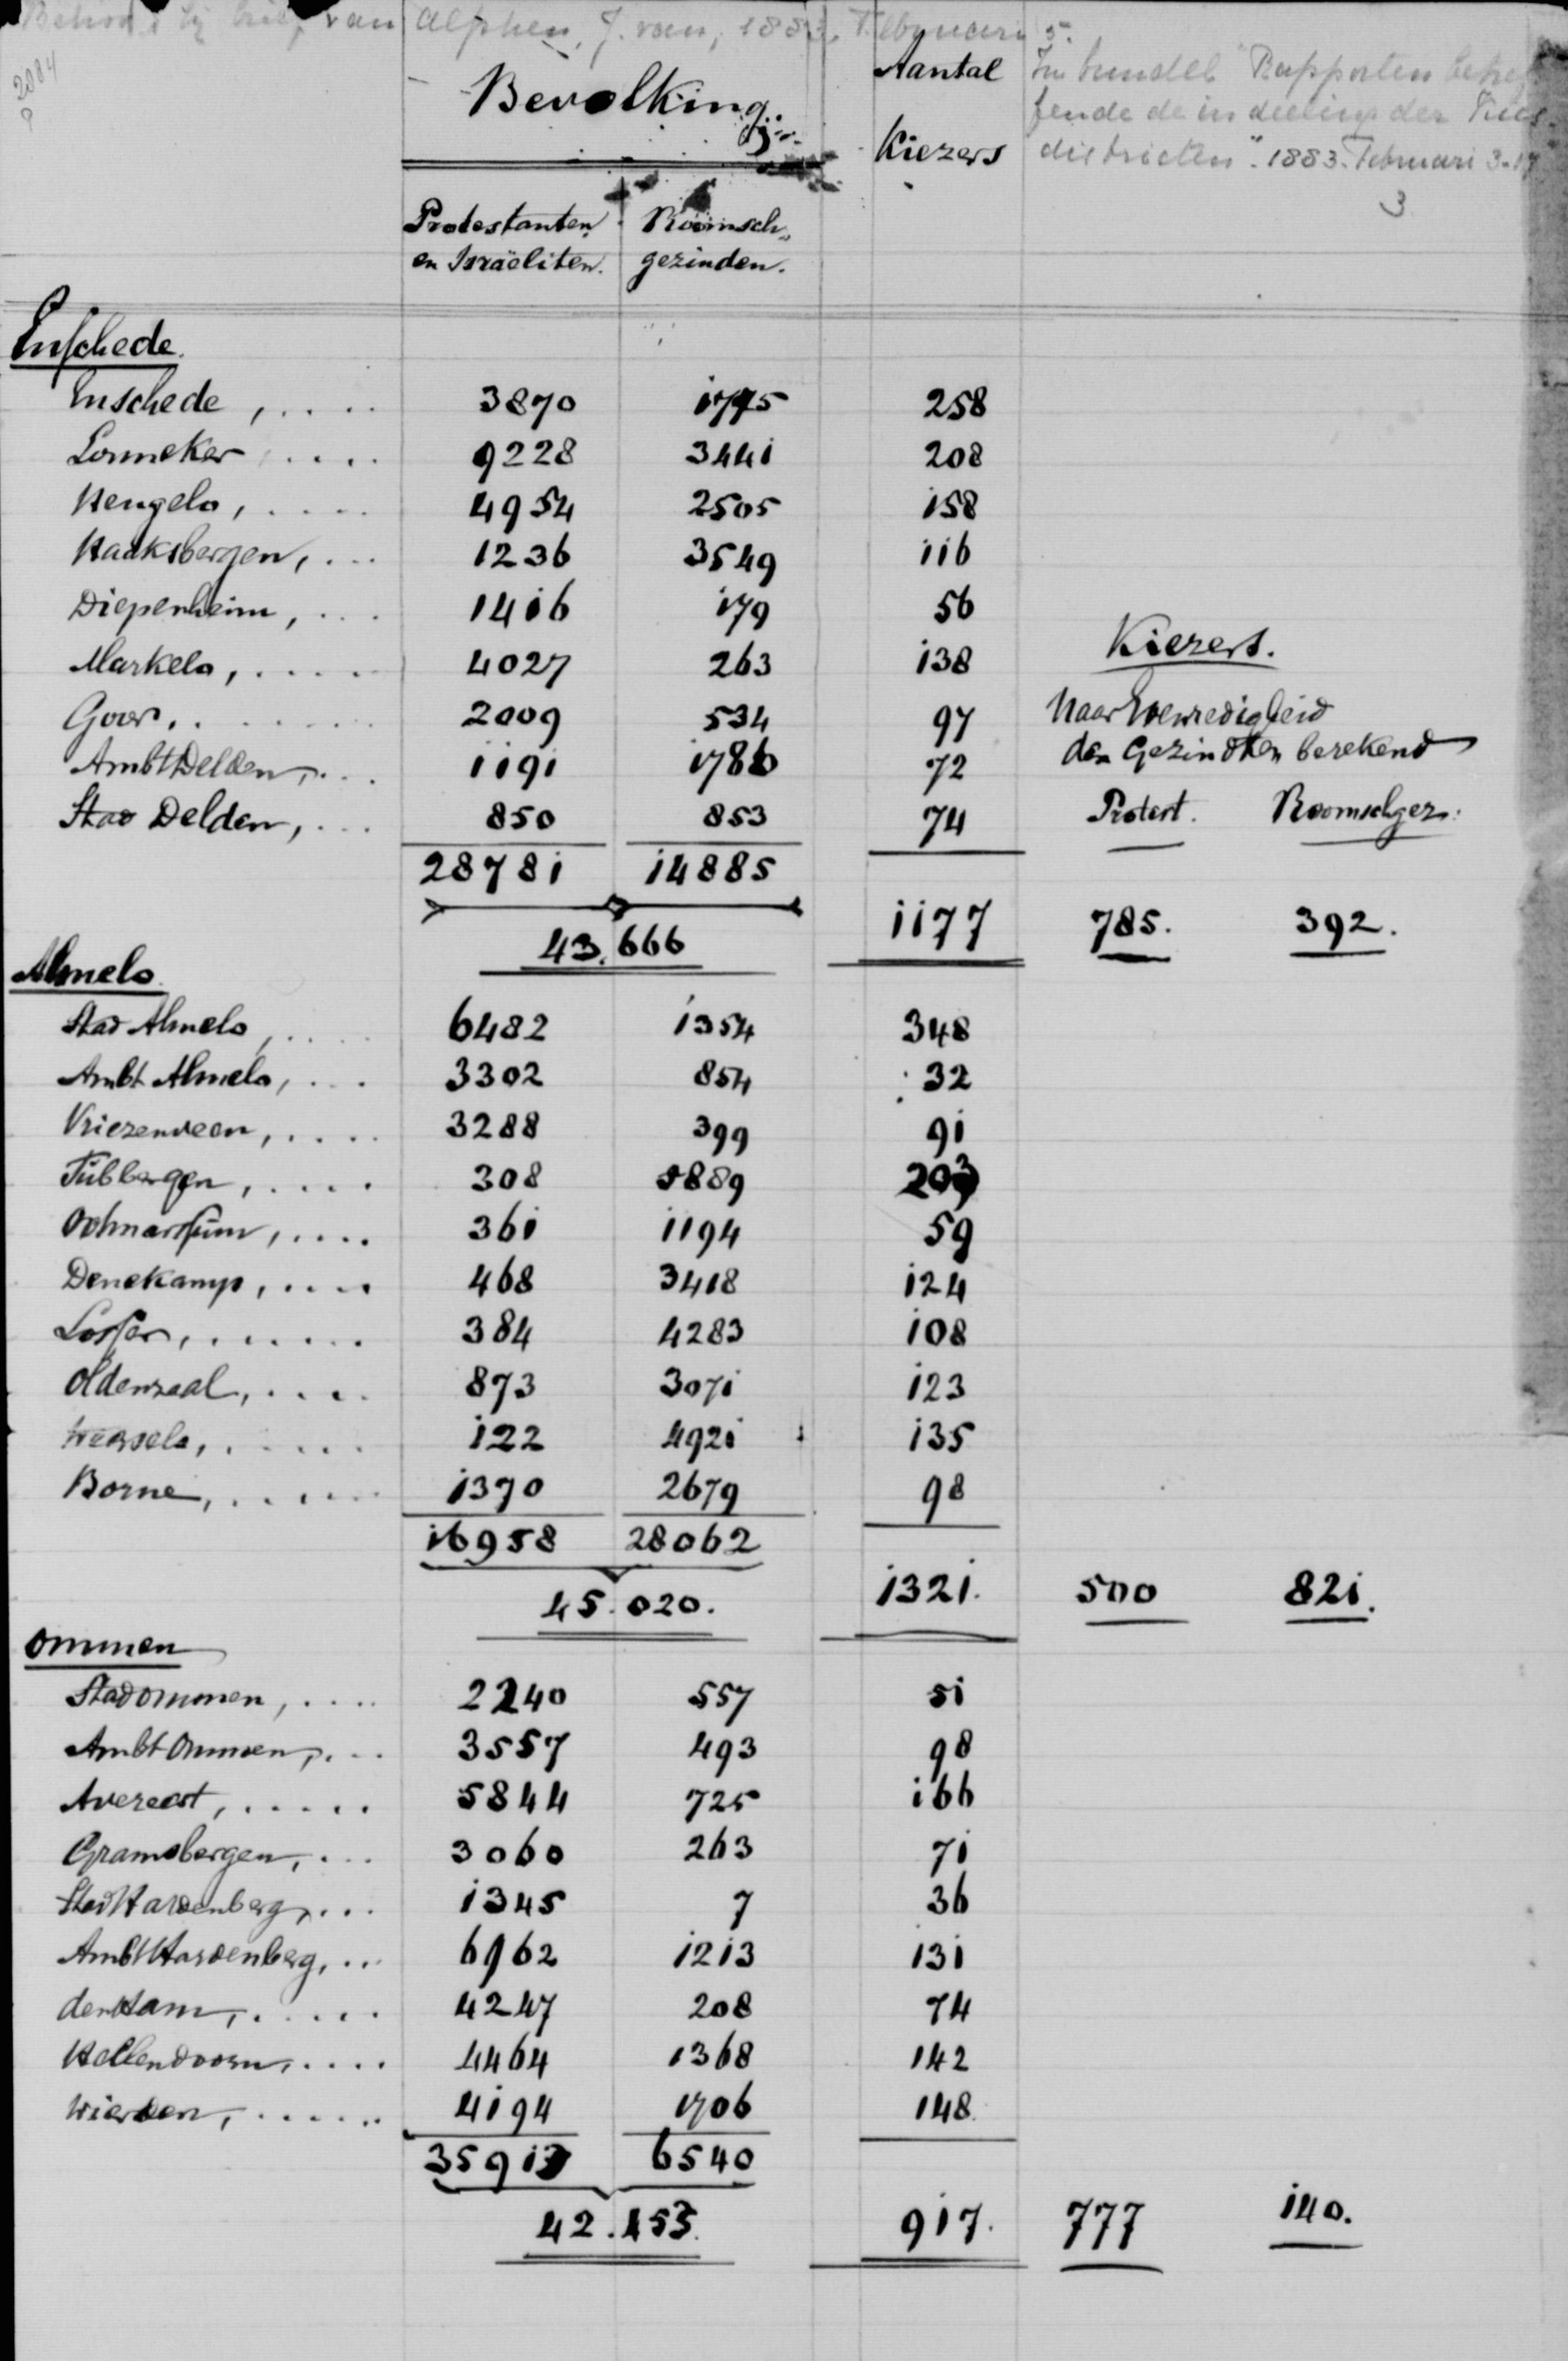 Behoort bij brief van Alphen, J. van, 1883. Februari 5.
2084
Bevolking.
Aantal
Kiezers
In bundel "Rapporten betref-
fende de indeeling der Kies-
districten". 1883. Februari 3-17
3
Protestanten en Israëliten.
Roomsch-gezinden.
Enschede.
Enschede, .... 3870 1775 258
Lonneker .... 9228 3441 208
Hengelo, .... 4954 2505 158
Haaksbergen, ... 1236 3549 116
Diepenheim, ... 1416 179 56
Kiezers.
Markelo, .... 4027 263 138
Naar Evenredigheid
Goor, ...... 2009 534 97
den Gezindten berekend
Ambt Delden, ... 1191 1786 72
Stad Delden, ... 850 853 74 Protest. Roomschgez:
28781 14885
1177 785. 392.
43.666
Almelo.
Stad Almelo, .... 6482 1354 348
Ambt Almelo, ... 3302 854 32
Vriezenveen, .... 3288 399 91
Tubbergen, .... 308 5889 203
Ootmarssum, .... 361 1194 59
Denekamp, .... 468 3418 124
Losser, ...... 384 4283 108
Oldenzaal, .... 873 3071 123
Weerselo, ..... 122 4921 135
Borne, ..... 1370 2679 98
16958 28062
1321. 500 821.
45.020.
Ommen
Stad Ommen, .... 2240 557 51
Ambt Ommen, ... 3557 493 98
Avereest, ..... 5844 725 166
Gramsbergen, ... 3060 263 71
Stad Hardenberg, ... 1345 7 36
Ambt Hardenberg, ... 6962 1213 131
den Ham, ..... 4247 208 74
Hellendoorn, .... 4464 1368 142
Wierden, ...... 4194 1706 148.
35913 6540
917. 777 140.
42.453.